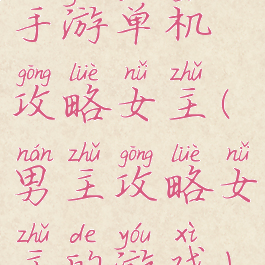 手游单机
gōng lüè nǚ zhǔ
攻略女主(
nán zhǔ gōng lüè nǚ
男主攻略女
zhǔ de yóu xì
主的游戏)